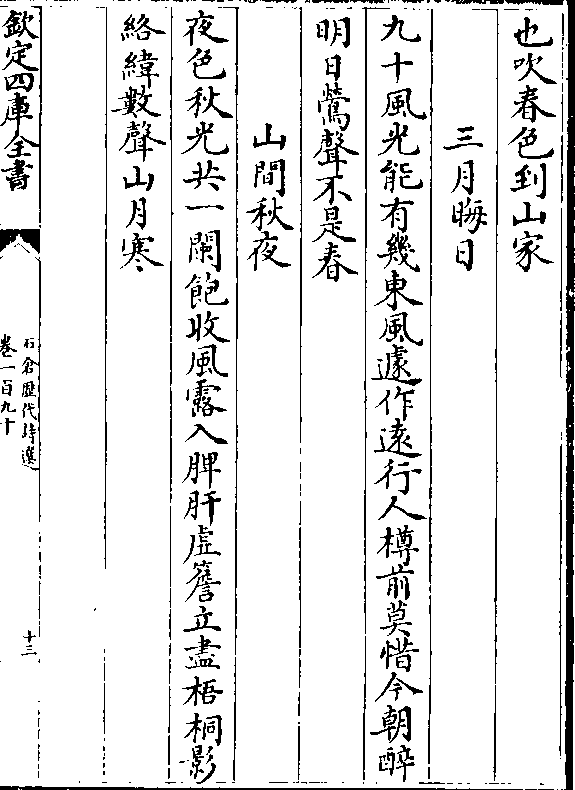 也吹春色到山家
三月晦日
九十風光能有幾東風遽作逺行人樽前莫惜今朝醉
明日鶯聲不是春
山間秋夜
夜色秋光共一闌飽收風露入脾肝虚簷立盡梧桐影
絡緯數聲山月寒
欽定四庫全書
石倉歴代詩選
卷一百九十
十三